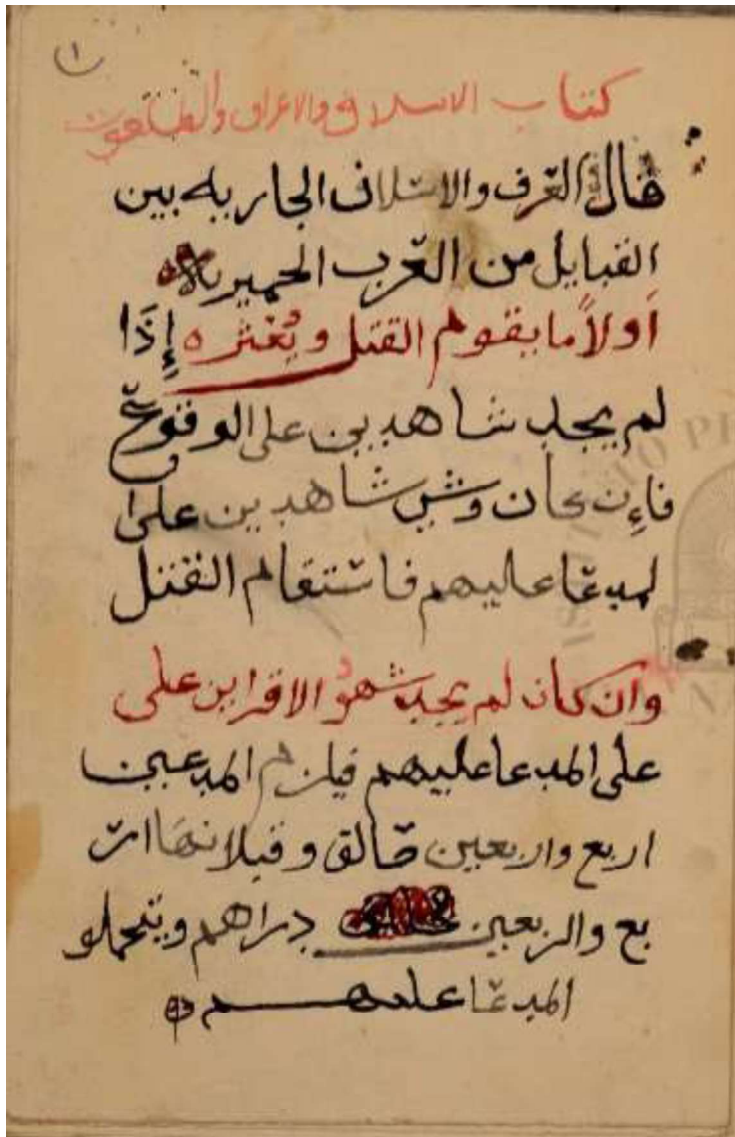 ١
كتاب الاسلاف والاعراف والطاغوت
قال العرف والاسلاف الجاريه بين
القبايل من العرب الحميريه
اولاً ما يقوم القتل ويعثره إِذَا
لم يجد شاهدين على الوقوع
فإن كان وشي شاهدين على
لمدعا عليهم فاستقام القتل
وان كان لم يجد شهو الاقراين على
على المدعا عليهم فيلزم المدعين
اربع واربعين حالق وقبلانها ار
بع والربعين دراهم ويتحملو
المدعا عليهم